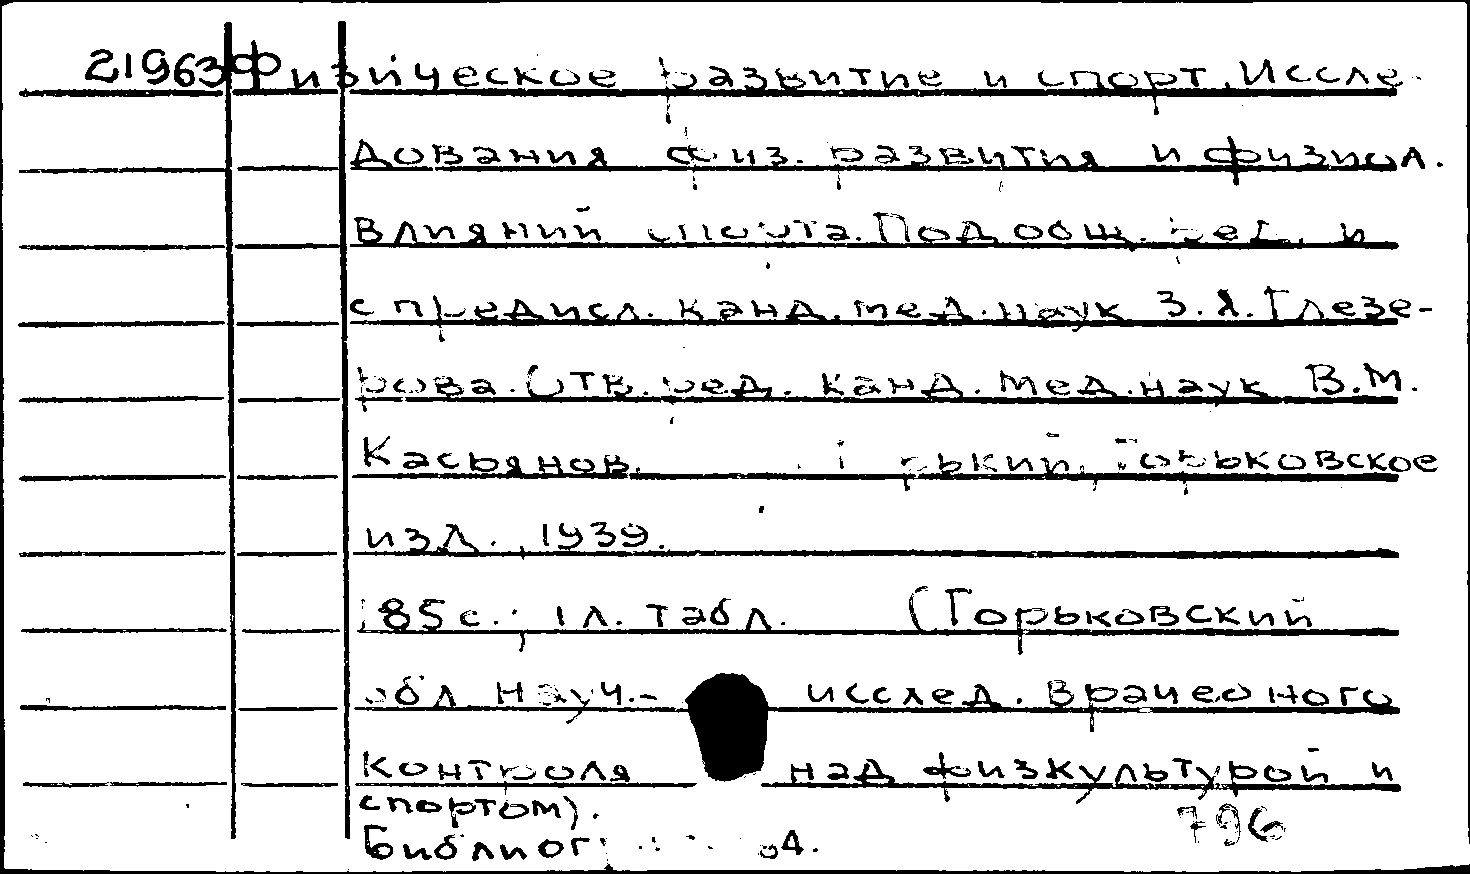 21963 Физическое развитие и спорт. Иссле-
дования физ. развития и физиол.
влияний спорта. Под общ. ред. и
с предисл. канд. мед. наук З.Я. Глезе-
рова. Отв. ред. канд. мед. наук В.М.
Касьянов. Горьковское
изд., 1939.
85 с.; 1 л. табл. (Горьковский
обл науч.- исслед. врачебного
контроля над физкультурой и
спортом).
796